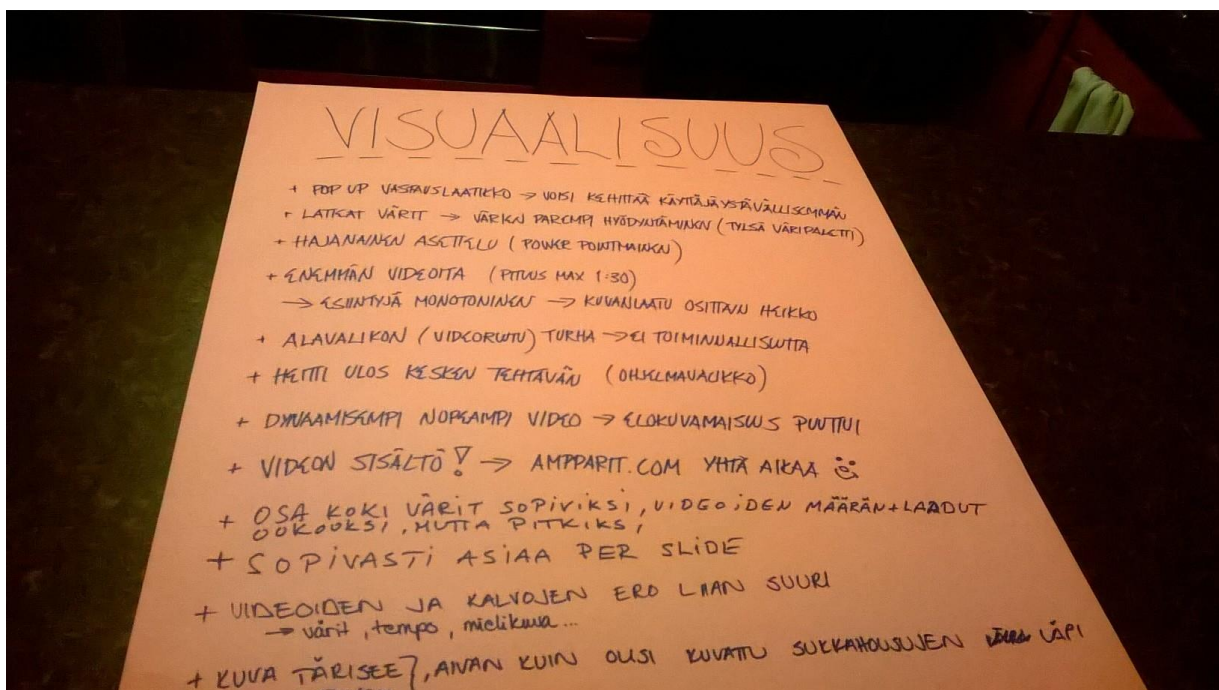 VISUAALISUUS
+ POP UP VASTAUSLAATIKKO → VOISI KEHITTÄÄ KÄYTTÄJÄYSTÄVÄLLISEMMÄN
+ LATTEAT VÄRIT → VÄRIEN PAREMPI HYÖDYNTÄMINEN (TYLSÄ VÄRIPALETTI)
+ HAJANAINEN ASETTELU (POWER POINTMAINEN)
+ ENEMMÄN VIDEOITA (PITUUS MAX 1:30)
→ ESIINTYJÄ MONOTONINEN → KUVANLAATU OSITTAIN HEIKKO
+ ALAVALIKON (VIDEORUUTU) TURHA → EI TOIMINNALLISUUTTA
+ HEITTI ULOS KESKEN TEHTÄVÄN (OHJELMAVALIKKO)
+ DYNAAMISEMPI NOPEAMPI VIDEO → ELOKUVAMAISUUS PUUTTUI
+ VIDEON SISÄLTÖ! → AMPPARIT.COM YHTÄ AIKAA
+ OSA KOKI VÄRIT SOPIVIKSI, VIDEOIDEN MÄÄRÄN+LAADUT
OOKOOKSI, MUTTA PITKIKSI,
+ SOPIVASTI ASIAA PER SLIDE
+ VIDEOIDEN JA KALVOJEN ERO LIIAN SUURI
→ värit, tempo, mielikuva...
+ KUVA TÄRISEE}, AIVAN KUIN OLISI KUVATTU SUKKAHOUSUJEN LÄPI